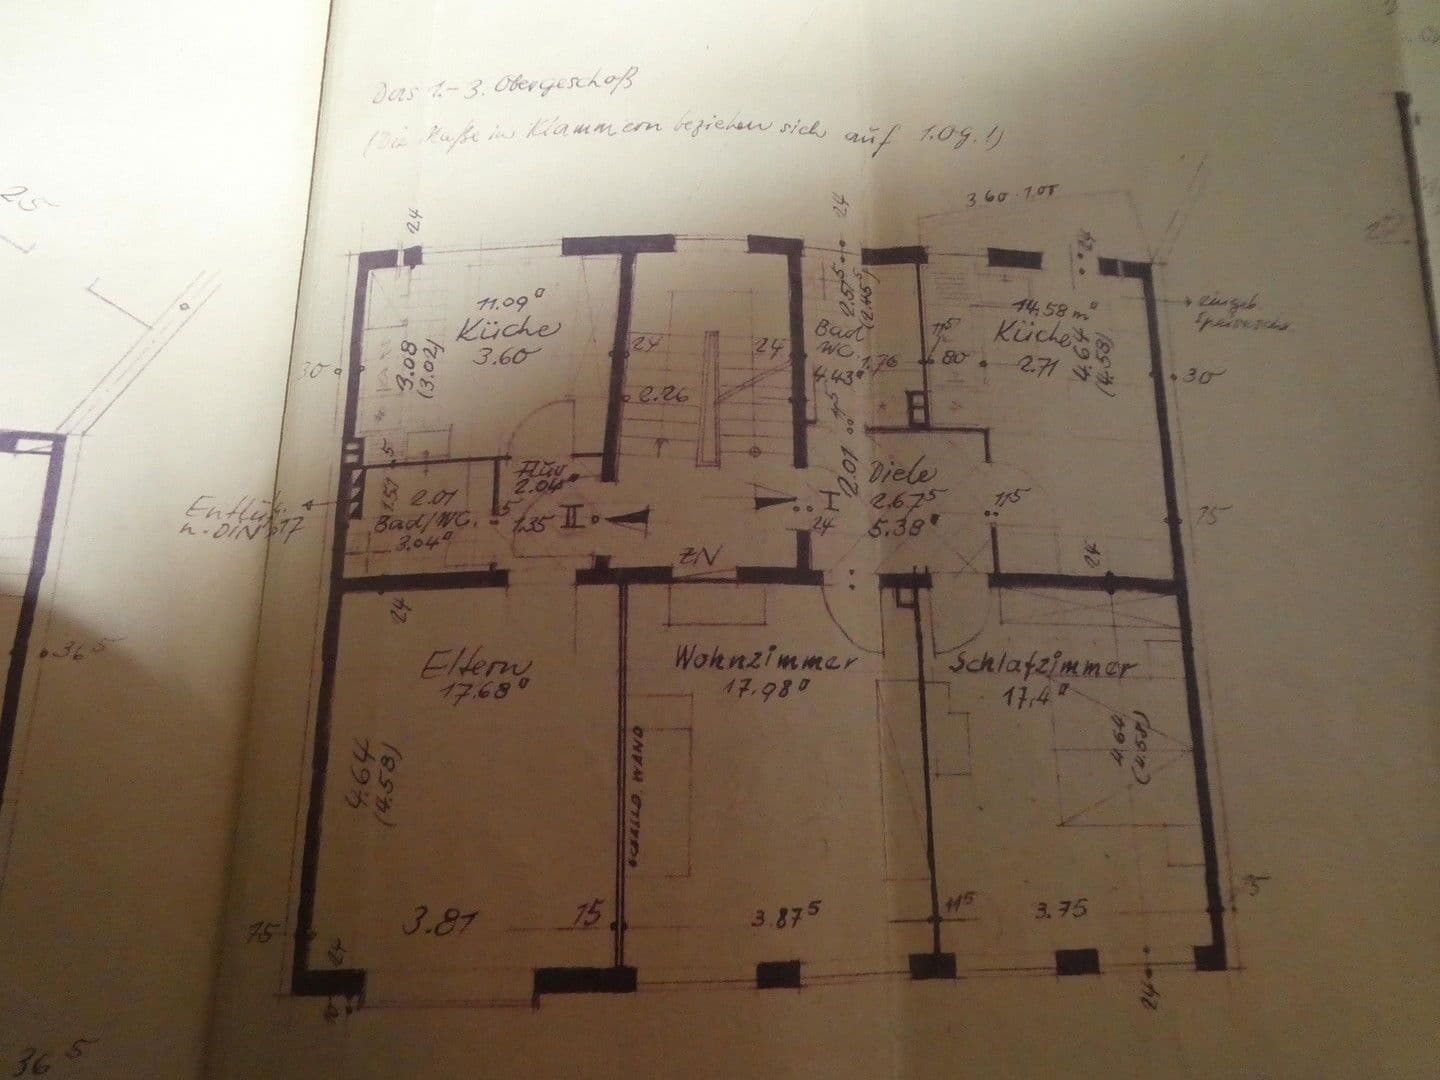 Das 1.-3. Obergeschoß
(Die Maße in Klammern beziehen sich auf 1.OG.!)
25
3.60 1.00
24
24
24
11.09
Küche
3.60
3.08
(3.02)
30
24
2.26
24
2.51⁵
(2.45⁵)
Bad
WC.
4.43
1.76
11⁵
80
14.58 m
Küche
2.71
4.64
(4.58)
eingeb.
30
5
1.51
2.01
Bad/WC.
3.04
Flur
2.04
5
1.35
II
Entlüft.
n. DIN
ZN
I
24
11⁵
2.01
Diele
2.67⁵
5.38
11⁵
15
24
24
Eltern
17.68
4.64
(4.58)
Wohnzimmer
17.98
SCHALLD. WAND
Schlafzimmer
17,4
4.64
(4.58)
36⁵
15
24
3.81
15
3.87⁵
11⁵
3.75
24
36⁵